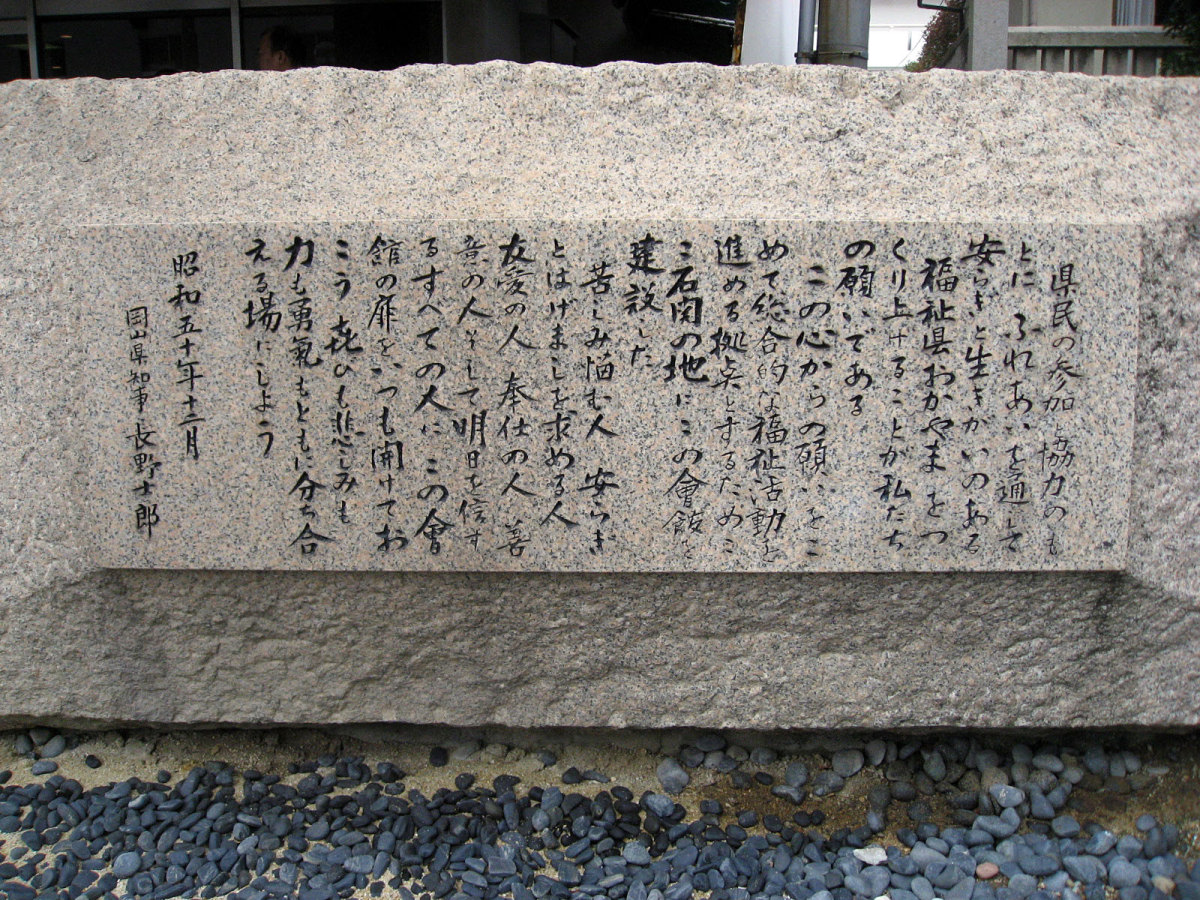 県民の参加と協力のも
とに ふれあいを通して
安らぎと生きがいのある
福祉県おかやまをつ
くり上げることが私たち
の願いである
この心からの願いをこ
めて総合的な福祉活動を
進める拠点とするためこ
こ石関の地にこの會館を
建設した
苦しみ悩む人 安らぎ
とはげましを求める人
友愛の人 奉仕の人 善
意の人そして明日を信ず
るすべての人に この會
館の扉をいつも開けてお
こう 喜びも悲しみも
力も勇氣もともに分ち合
える場にしよう
昭和五十年十二月
岡山県知事 長野士郎